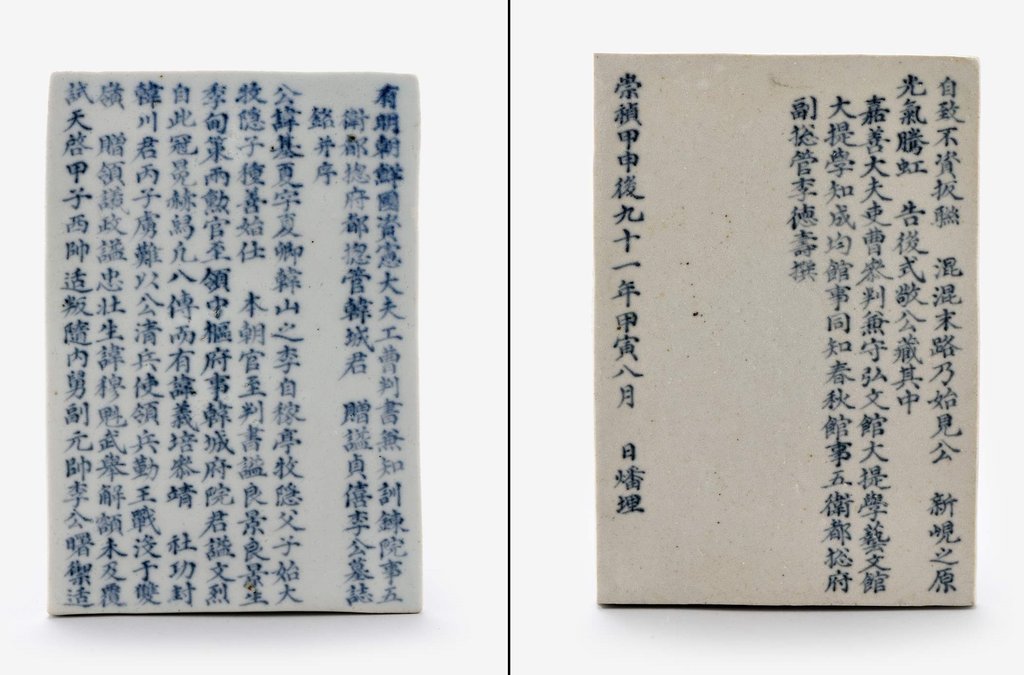 有明朝鮮國資憲大夫工曹判書兼知訓鍊院事五
衛都捴府都捴管韓城君 贈謚貞僖李公墓誌
銘并序
公諱基夏字夏卿韓山之李自稼亭牧隱父子始大
牧隱子種善始仕 本朝官至判書謚良景良景生
季甸策兩勳官至領中樞府事韓城府院君謚文烈
自此冠冕赫舄凡八傳而有諱義培叅靖 社功封
韓川君丙子虜難以公清兵使領兵勤王戰沒于雙
嶺 贈領議政謚忠壯生諱穆魁武舉解額未及覆
試天啓甲子西帥适叛隨內舅副元帥李公曙禦适
自致不資扳聯 混混末路乃始見公 新峴之原
光氣騰虹 告後式敬公藏其中
嘉善大夫吏曹叅判兼守弘文館大提學藝文館
大提學知成均館事同知春秋館事五衛都捴府
副捴管李德壽撰
崇禎甲申後九十一年甲寅八月 日燔埋